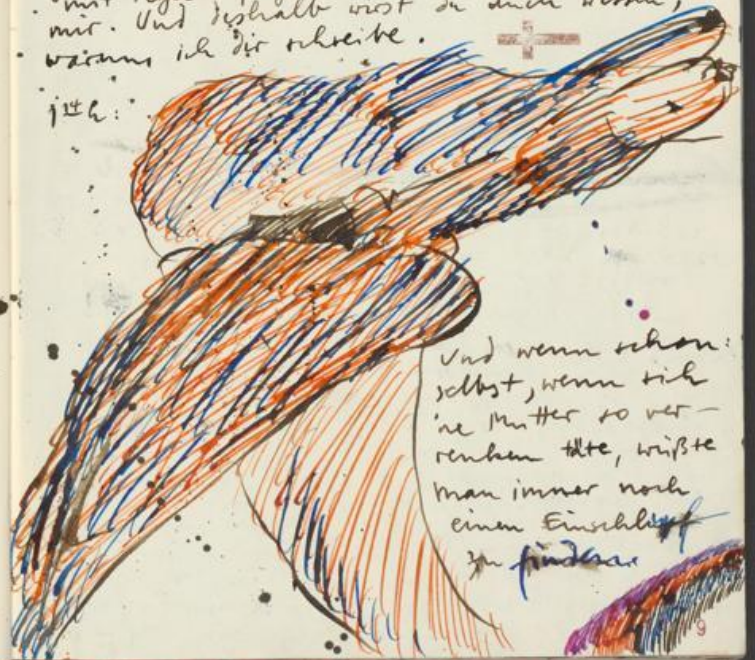 mir. Und deshalb wirst du auch wissen,
warum ich dir schreibe.
Und wenn schon:
selbst, wenn sich
'ne Mutter so ver-
renken täte, wüßte
man immer noch
einen Einschlupf
zu finden.
9